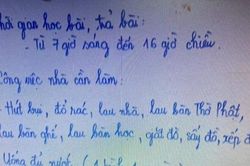 hời gian học bài, trả bài:
- Từ 7 giờ sáng đến 16 giờ chiều.
Công việc nhà cần làm:
- Hút bụi, đổ rác, lau nhà, lau bàn Thờ Phật,
lau bàn ghế, lau bàn học, giặt đồ, sấy đồ, xếp đ
- Uống đủ nước